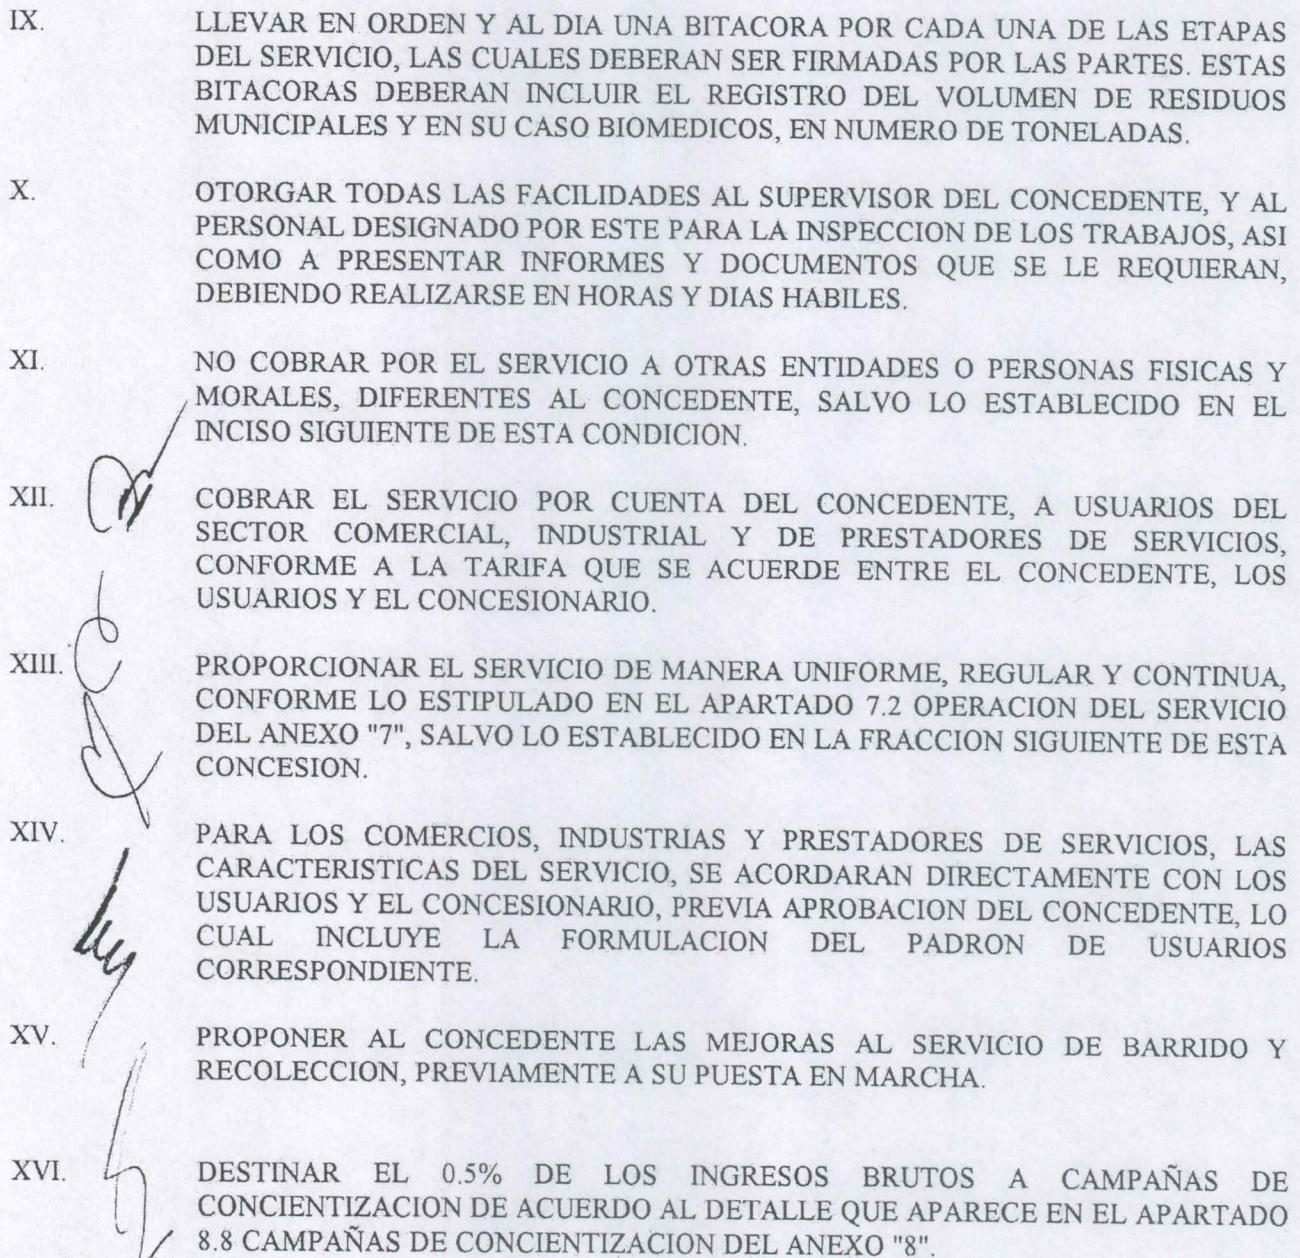 IX. LLEVAR EN ORDEN Y AL DIA UNA BITACORA POR CADA UNA DE LAS ETAPAS
DEL SERVICIO, LAS CUALES DEBERAN SER FIRMADAS POR LAS PARTES. ESTAS
BITACORAS DEBERAN INCLUIR EL REGISTRO DEL VOLUMEN DE RESIDUOS
MUNICIPALES Y EN SU CASO BIOMEDICOS, EN NUMERO DE TONELADAS.
X. OTORGAR TODAS LAS FACILIDADES AL SUPERVISOR DEL CONCEDENTE, Y AL
PERSONAL DESIGNADO POR ESTE PARA LA INSPECCION DE LOS TRABAJOS, ASI
COMO A PRESENTAR INFORMES Y DOCUMENTOS QUE SE LE REQUIERAN,
DEBIENDO REALIZARSE EN HORAS Y DIAS HABILES.
XI. NO COBRAR POR EL SERVICIO A OTRAS ENTIDADES O PERSONAS FISICAS Y
MORALES, DIFERENTES AL CONCEDENTE, SALVO LO ESTABLECIDO EN EL
INCISO SIGUIENTE DE ESTA CONDICION.
XII. COBRAR EL SERVICIO POR CUENTA DEL CONCEDENTE, A USUARIOS DEL
SECTOR COMERCIAL, INDUSTRIAL Y DE PRESTADORES DE SERVICIOS,
CONFORME A LA TARIFA QUE SE ACUERDE ENTRE EL CONCEDENTE, LOS
USUARIOS Y EL CONCESIONARIO.
XIII. PROPORCIONAR EL SERVICIO DE MANERA UNIFORME, REGULAR Y CONTINUA,
CONFORME LO ESTIPULADO EN EL APARTADO 7.2 OPERACION DEL SERVICIO
DEL ANEXO "7", SALVO LO ESTABLECIDO EN LA FRACCION SIGUIENTE DE ESTA
CONCESION.
XIV. PARA LOS COMERCIOS, INDUSTRIAS Y PRESTADORES DE SERVICIOS, LAS
CARACTERISTICAS DEL SERVICIO, SE ACORDARAN DIRECTAMENTE CON LOS
USUARIOS Y EL CONCESIONARIO, PREVIA APROBACION DEL CONCEDENTE, LO
CUAL INCLUYE LA FORMULACION DEL PADRON DE USUARIOS
CORRESPONDIENTE.
XV. PROPONER AL CONCEDENTE LAS MEJORAS AL SERVICIO DE BARRIDO Y
RECOLECCION, PREVIAMENTE A SU PUESTA EN MARCHA.
XVI. DESTINAR EL 0.5% DE LOS INGRESOS BRUTOS A CAMPAÑAS DE
CONCIENTIZACION DE ACUERDO AL DETALLE QUE APARECE EN EL APARTADO
8.8 CAMPAÑAS DE CONCIENTIZACION DEL ANEXO "8".